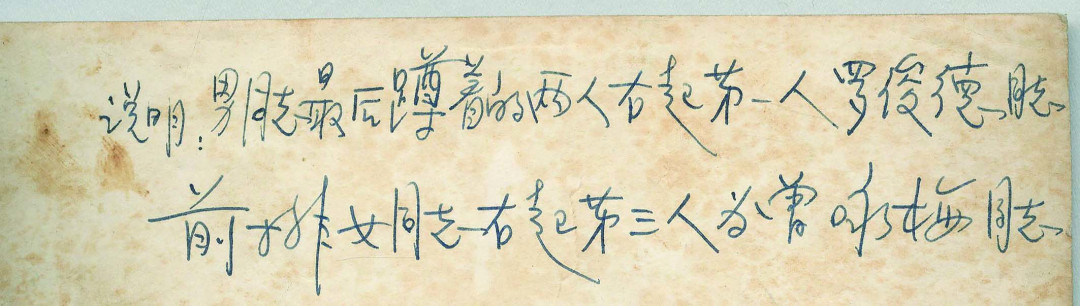 说明:男同志最后蹲着的两人右起第一人罗俊德同志
前排女同志右起第三人为曾咏梅同志